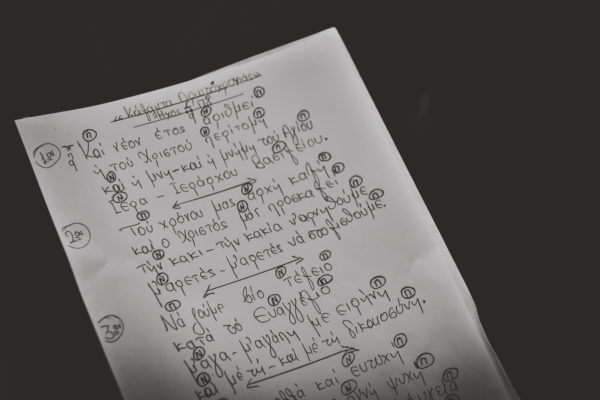 «Κάλαντα Πρωτοχρονιάς»
Ἦχος
1ον Και νέον ἔτος ἀριθμεῖ
ἡ τοῦ Χριστοῦ Περιτομή
καὶ ἡ μνη-καὶ ἡ μνήμη τοῦ Ἁγίου
Ἱερα-Ἱεράρχου Βασιλείου.
2ον Τοῦ χρόνου μας ἀρχή καλή
καὶ ὁ Χριστός μᾶς προσκαλεῖ
τὴν κακι-τὴν κακία ν'αρνηθοῦμε
μ'αρετές-μ'αρετές νὰ στολισθοῦμε.
3ον Νὰ ζοῦμε βίο τέλειο
κατά τὸ Εὐαγγέλιο
μ'αγα-μ'αγάπη με εἰρήνη
καὶ με τη-καὶ με τη δικαιοσύνη.
καὶ εὐτυχή
ψυχή